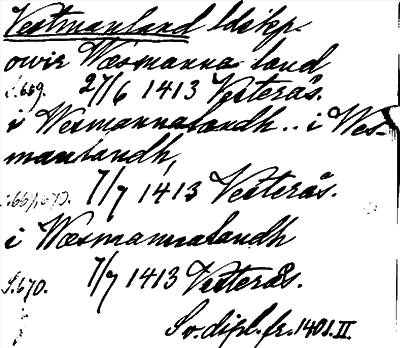 Vestmanland ldskp.
owir Wæsmanna land
S. 669. 27/6 1413 Vesterås.
i Wesmannalandh .. i Wes-
manlandh,
7/7 1413 Vesterås.
i Wæsmannalandh
S. 670. 7/7 1413 Vesterås.
Sv. dipl. fr. 1401. II.